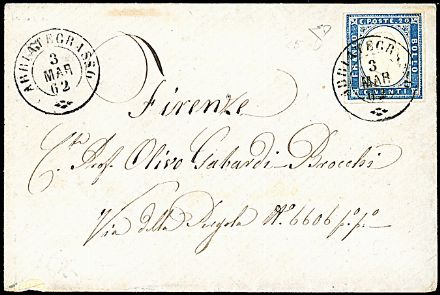 ABBIATEGRASSO
3
MAR
62
FRANCO POSTE 20 BOLLO
C. VENTI
ABBIATEGRASSO
3
MAR
62
Firenze
Prof. Olivo Gabardi-Brocchi
Via della Pergola N.º 6606 p.º p.º